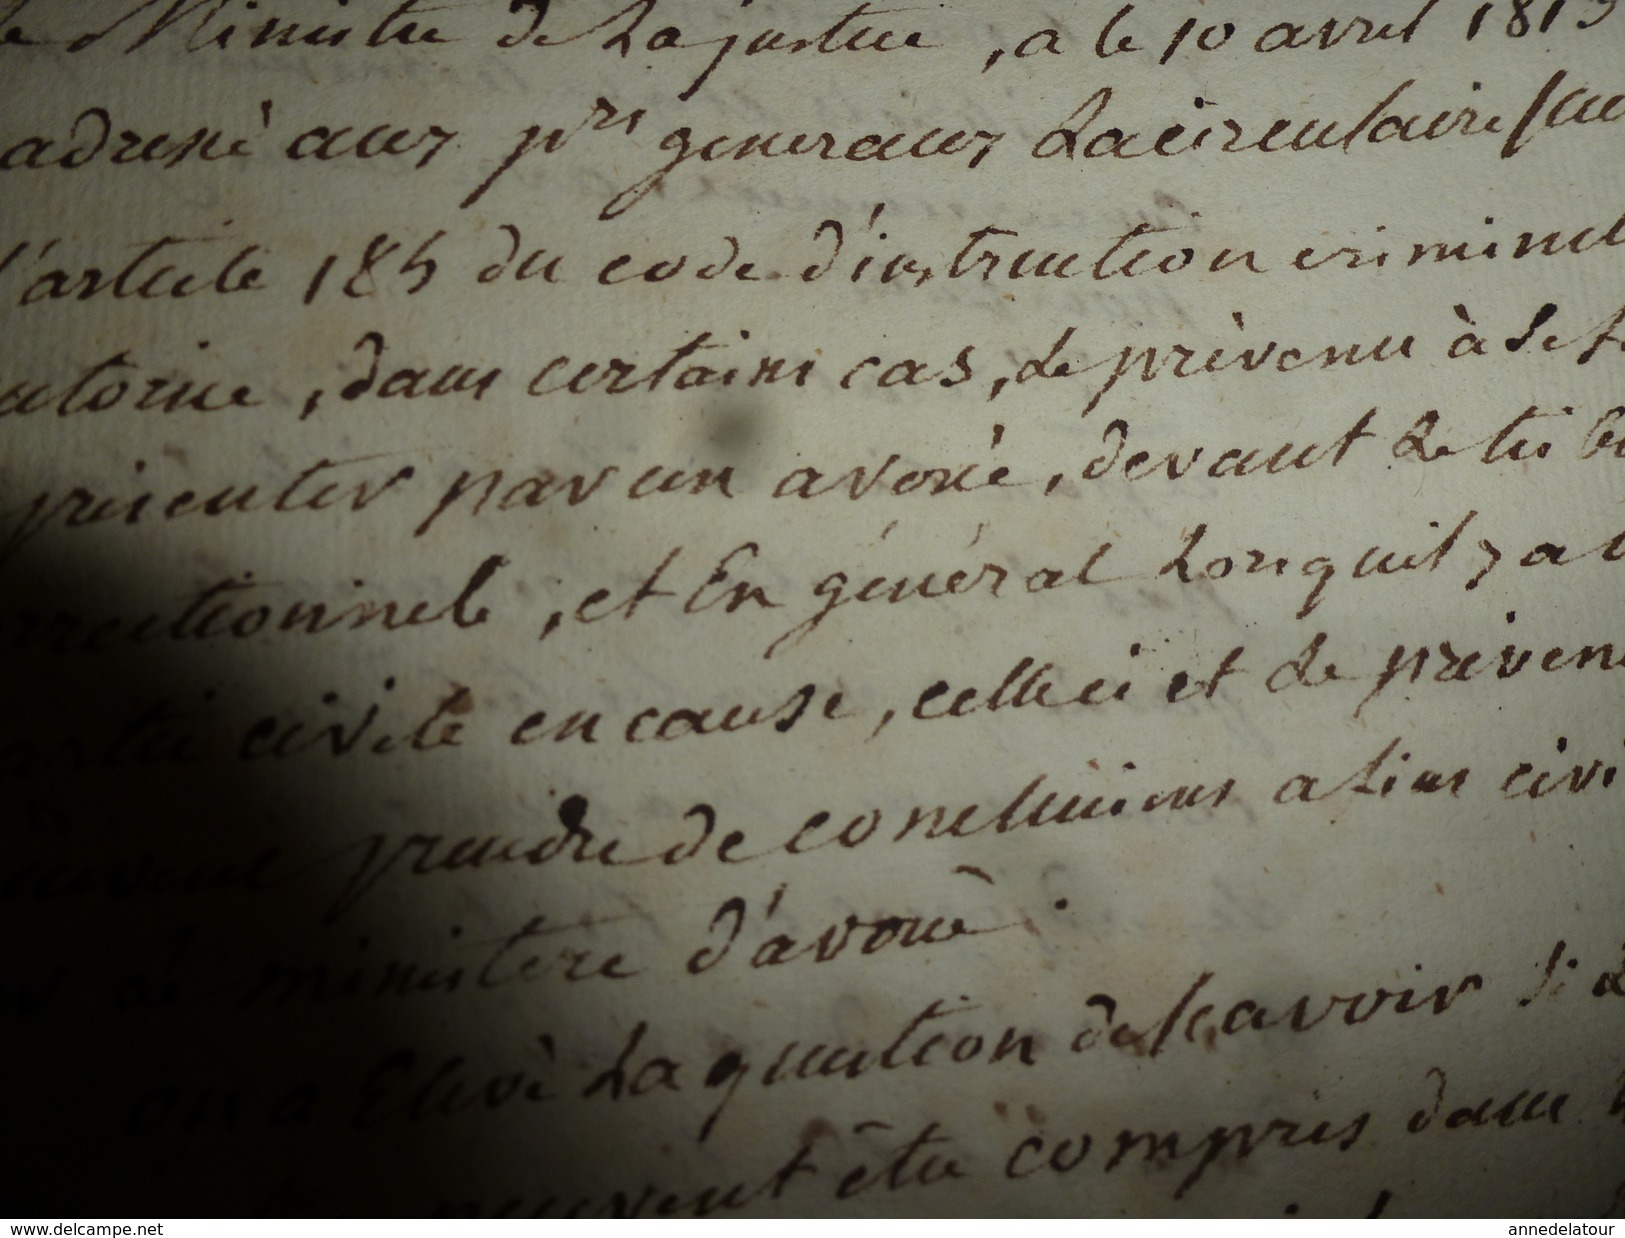 Ministre de La justice, a le 10 avril 1813
adressé aux prs generaux La circulaire sui
l'article 185 du code d'instruction criminel
utorise, dans certains cas, Le prèvenu à Se f
présenter par un avoué, devant Le trib
rrectionnele, et En général Lorsquil y a u
artie civile en cause, celle ci et Le preven
prendre de conclusions a fins civi
Le ministere d'avoué.
on a Elevé La question de scavoir Si L
peuvent être compris dans
www.delcampe.net
annedelatour